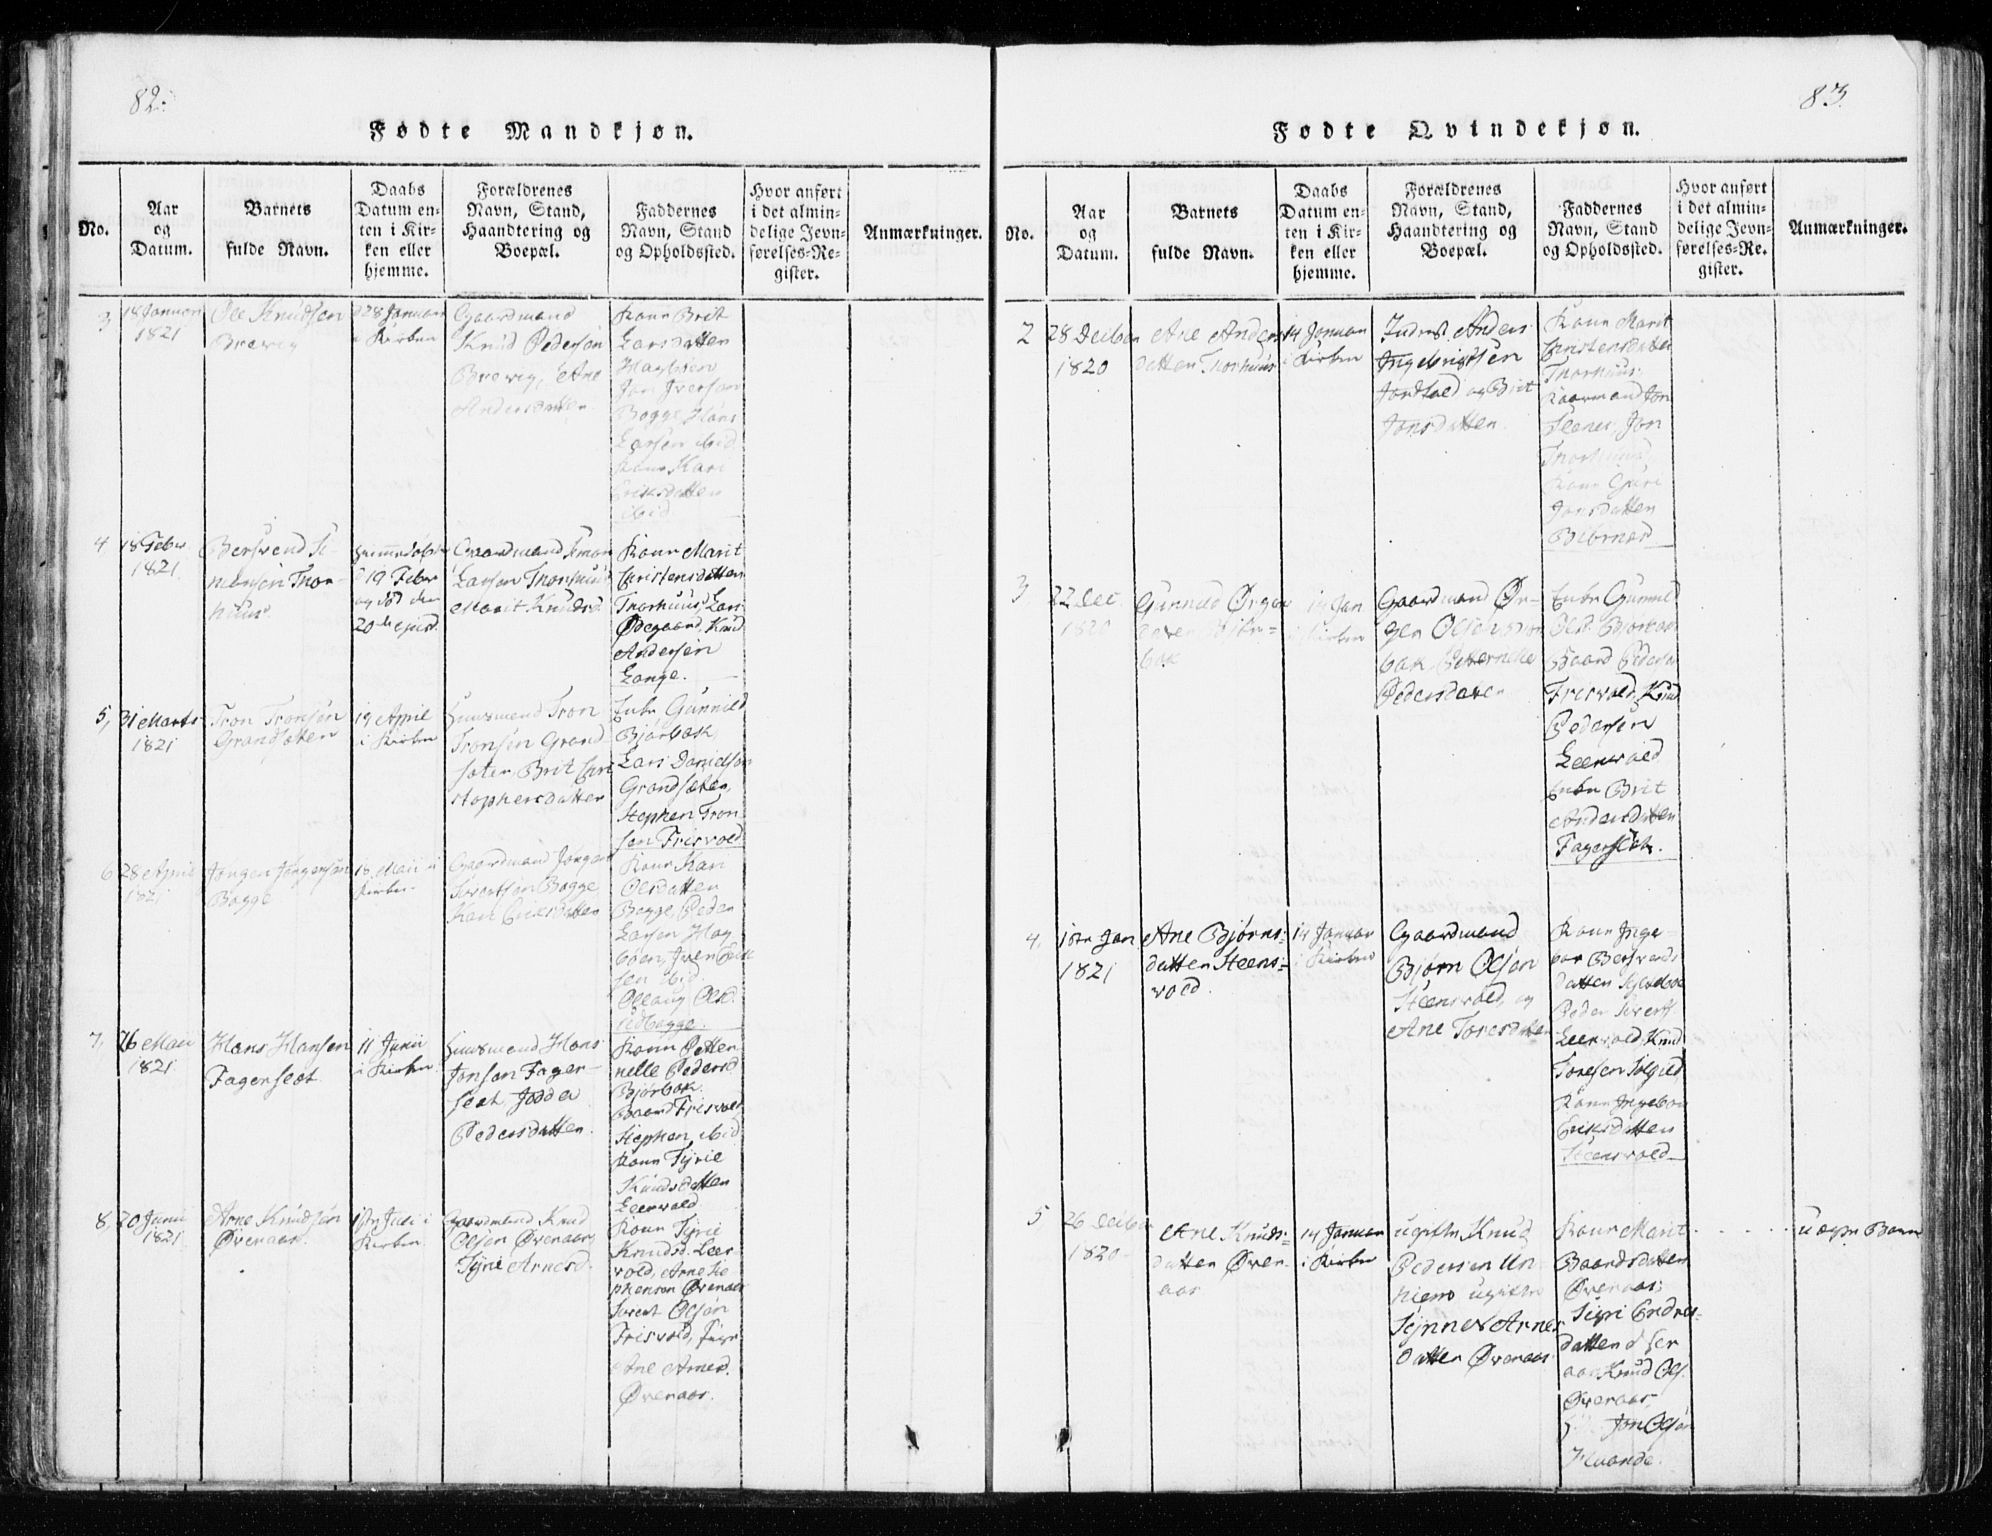 82.
Fødte Mandkjøn.
No.
Aar
og
Datum.
Barnets
fulde Navn.
Daabs
Datum en-
ten i Kir-
ken eller
hjemme.
Forældrenes
Navn, Stand,
Haandtering og
Boepæl.
Faddernes
Navn, Stand
og Opholdssted.
Hvor anført
i det almin-
delige Jevn-
førelses-Re-
gister.
Anmærkninger.
3
18 Januar
1821
Ole Knudsen
Brevig
d 28 Januar
i Kirken
Gaardmand
Knud Pedersen
Brevig, Ane
Andersdatter
Kone Brit
Larsdatter
Hagbøen
Jon Iversen
Bogge, Hans
Larsen ibid
Kone Kari
Eriksdatter
ibid
4
18 Febr
1821
Bersvend Si-
monsen Thor-
huus
hjemmedøbt
d 19 Febr
og død den
20de ejusd.
Gaardmand Simon
Larsen Thorhuus
Marit Knudsd
Kone Marit
Christensdatter
Thorhuus, Lars
Ødegaard, Knud
Andersen
Lange.
5,
31 Marts
1821
Tron Tronsen
Grandsæter
19 April
i Kirken
Huusmand Tron
Tronsen Grand
sæter, Brit Chri
stophersdatter
Enke Gunnild
Bjørbak,
Lars Danielsen
Grandsæter,
Stephen Tron
sen Frisvold
6
28 April
1821
Jørgen Jørgensen
Bogge
18 Maii i
Kirken
Gaardmand Jørgen
Sivertsen Bogge
Kari Eriksdatter
Kone Kari
Olsdatter
Bogge, Peder
Larsen Hag
bøen, Iver Erik
sen ibid
Ollaug Olsd.
7,
26 Maii
1821
Hans Hansen
Fagerslet
11 Junii
i Kirken
Huusmand Hans
Jonsen Fager-
slet, Jodda
Pedersdatter.
Kone Petter
nelle Pedersd
Bjørbak.
Baard Frisvold
Stephen ibid
Kone Tyrie
Knudsdatter
Leervold
8,
20 Junii
1821
Arne Knudsen
Øveraas.
1ste Juli i
Kirken
Gaardmand Knud
Olsen Øveraas
Tyrie Arnesd.
Kone Tyrie
Knudsd. Leer
vold, Arne Ste
phensen Øveraas
Sivert Olsen
Frisvold, Pige
Ane Arnesd.
Øveraas.
83.
Fødte Qvindekjøn.
No.
Aar
og
Datum.
Barnets
fulde Navn.
Daabs
Datum en-
ten i Kir-
ken eller
hjemme.
Forældrenes
Navn, Stand,
Haandtering og
Boepæl.
Faddernes
Navn, Stand
og Opholdssted.
Hvor anført
i det almin-
delige Jevn-
førelses-Re-
gister.
Anmærkninger.
2
28 Decber
1820
Ane Anders
datter Thorhuus
14 Januar
i Kirken
Inderst Anders
Ingebrigtsen
og Brit
Jonsdatter
Kone Marit
Christensdatter
Thorhuus,
Jon
Thorhuus,
Kone Guri
Jonsdatter
3
22 Dec.
1820
Gunnild Ørgen
datter Bjør-
bak
14 Jan
i Kirken
Gaardmand Ør-
gen Olsen Bjør
bak, Petternelle
Pedersdatter
Enke Gunnild
Olsd. Bjørbak
Baard Pedersen
Frisvold, Knud
Pedersen
Leervold
Enke Brit
Andersdatter
Fagerslet.
4.
1ste Jan
1821
Ane Bjørns-
datter Steens-
vold.
14 Januar
i Kirken
Gaardmand
Bjørn Olsen
Steensvold, og
Ane Toresdatter
Kone Inge-
bor Bersvends
datter
Peder Sivert.
Leervold, Knud
Toresen
Kone Ingebor
Eriksdatter
Steensvold
5
26 Decber
1820
Ane Knuds-
datter Øver-
aas
14 Januar
i Kirken
ugifte Knud
Pedersen Un
hiem ugifte
Synnev Arnes
datter Øveraas
Kone Marit
Baardsdatter
Øveraas,
Sigri Endres-
datter
Knud Ols.
Øveraas,
Jon Olsen
uægte Barn